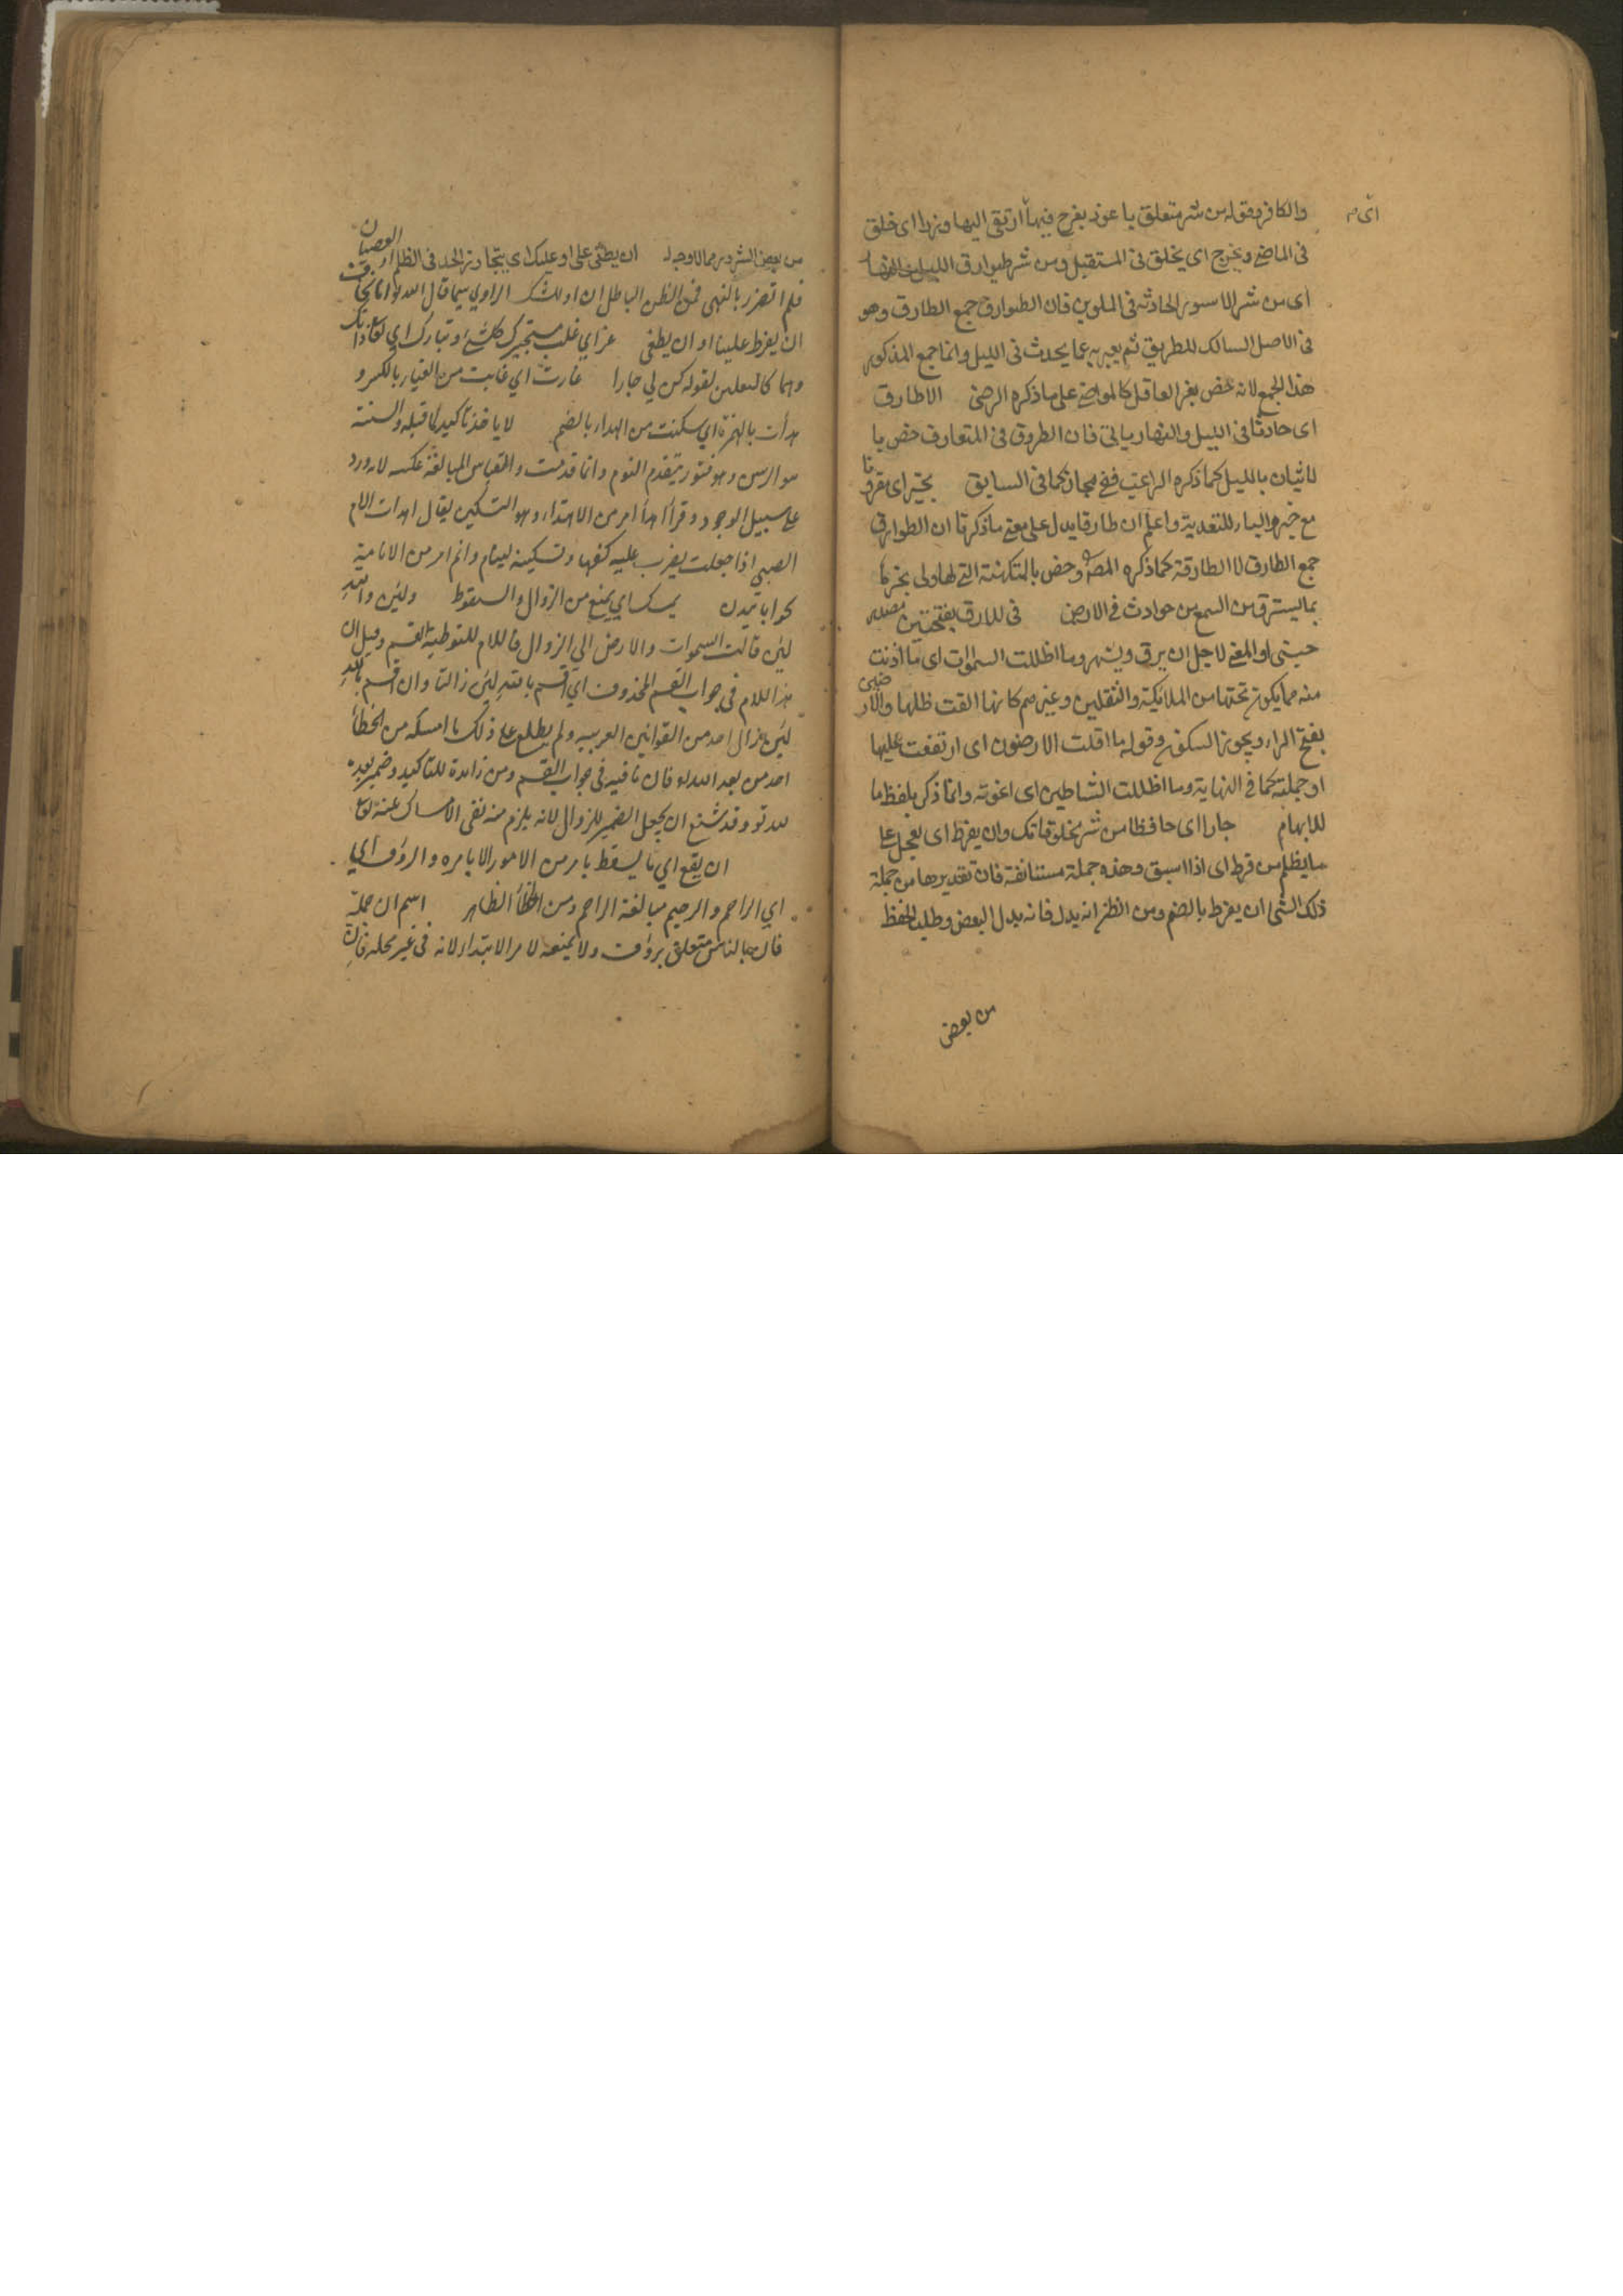 والكافر وقوله من شر متعلق باعوذ يعرج فيها ارتقى اليها وذرا اى خلق
اى م
فى الماضى ويخرج اى يخلق فى المستقبل ومن شر طوارق الليل والنهار
اى من شر الامور الحادثة فى الملوين فان الطوارق جمع الطارق وهو
فى الاصل السالك للطريق ثم يعبر به عما يحدث فى الليل وانما جمع المذكور
هذا الجمع لانه خص بغير العاقل كالمواضى على ما ذكره الرضى الا طارق
اى حادثا فى الليل والنهار ياتى فان الطروق فى المتعارف خص با
لاتيان بالليل كما ذكره الراغب ففيه مجاز كما فى السابق بخير اى مقرونا
مع خير والباء للتعدية واعلم ان طارقا يدل على معنى ما ذكرنا ان الطوارق
جمع الطارق لا الطارقة كما ذكره المص وخص بالتكهنة التى لها ولى يخبرها
بما يسترق من السمع من حوادث فى الارض فى للارق بفتحتين مصدر
حينئذ والمعنى لاجل ان يرق ويسهر وما اظلت السموات اى ما اذنت
منه مما يكون تحتها من الملايكة والثقلين وغيرهم كانها القت ظلها والارضين
بفتح الراء ويجوز السكون وقوله ما اقلت الارضون اى ارتفعت عليها
او حملته كما فى النهاية وما اظلت الشاطين اى اغوته وانما ذكر بلفظ ما
للابهام جارا اى حافظا من شر مخلوقاتك وان يفرط اى يعجل على
ما يظلم من فرط اى اذا اسبق وهذه جملة مستانفة فان تقديرها من جملة
ذلك الشى ان يفرط بالضم ومن الظن انه بدل فانه بدل البعض وطلب الحفظ
من بعض
من بعض الشرور مما لا وجه له ان يطغى على او عليك اى يتجاوز الحد فى الظلم او العصيان
فلم اتصرر بالنهى فمن الظن الباطل ان او للشك الراوي سيما قال الله تعالى اننا نخاف
ان يفرط علينا او ان يطغى عز اي غلب مستجيرك كل شئ وتبارك اي تعاظم ذاتك
وهما كالتعلين لقوله كن لي جارا غارت اي غابت من الغيار بالكسر و
هدأت بالهمزة اي سكنت من الهداء بالضم لا ياخذ تاكيد لما قبله والسنة
هو الوسن وهو فتور يتقدم النوم وانما قدمت والقياس المبالغة عكسه لانه ورد
على سبيل الوجود وقرأ اهدأ امر من الاهتداء وهو التسكين يقال اهدأت الام
الصبي اذا جعلت يضرب عليه كفها وتسكينه لينام وانم امر من الانامة
لئن قالت السموات والارض الى الزوال فاللام للتوطية القسم وقيل ان
هذا اللام فى جواب القسم المحذوف اي اقسم بالله لئن زالتا وان اقسم بالله
لئن نزال احد من القوانين العربيه ولم يطلع على ذلك ما امسكه من الخطأ
احد من بعد الله تعالى فان نافيه فى جواب القسم ومن زائدة للتاكيد وضمير بعده
لله تعالى وقد شنع ان يجعل الضمير للزوال لانه يلزم منه نفى الامساك عنه تعالى
ان يقع اي ما يسقط بامر من الامور الا بامره والرؤف اي
اي الراحم والرحيم مبالغة الراحم ومن الخطأ الظاهر اسم ان جملة
فان بالناس متعلق برؤف ولا يمنعه لام الابتداء لانه فى غير محله فان